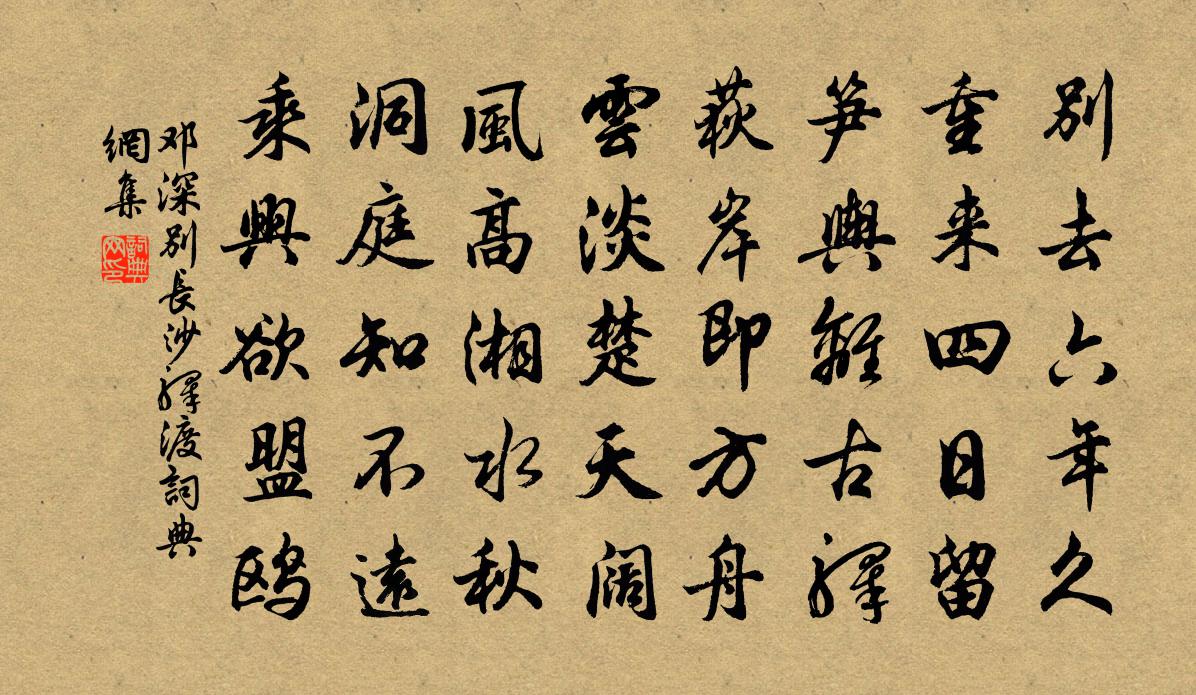 別去六年久
重来四日留
笋輿離古驛
荻岸即方舟
雲淡楚天阔
風高湘水秋
洞庭知不遠
乘興欲盟鸥
邓深别長沙驛渡詞典
網集
詞典
网印